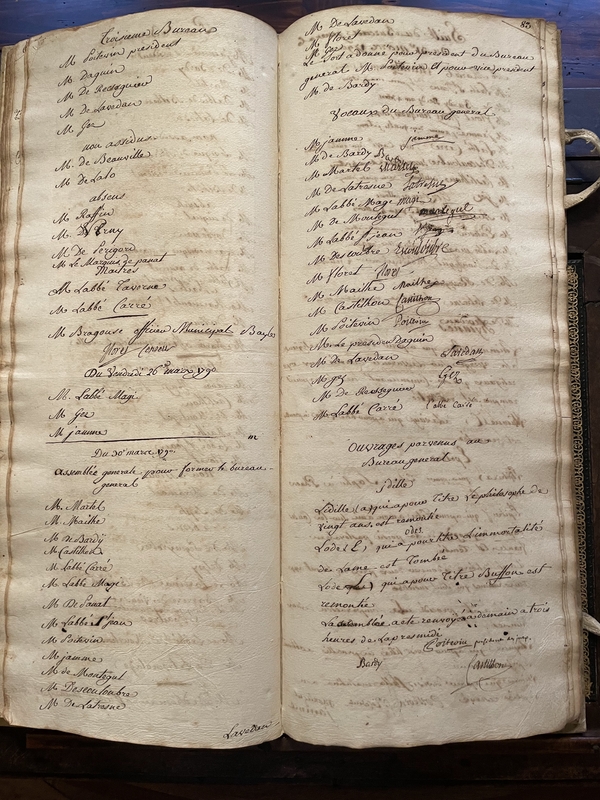 Troisieme Bureau
M Poitevin président
M Daguin
M de Resseguier
M de Lavedan
M Gez
non assidus
M. de Beauville
M de Lalo
absens
M. Raffin
M. D
M De Perigord
M Le Marquis de panat
Maitres
M Labbé Taverne
M Labbé Carré
M Bragouse officier Municipal Bayles
floret Censeur
Du Vendredi 26 mars 1790
M. Labbé Magi
M Gez
M jamme
Du 30 mars 179
assemblée generale pour former le bureau
general
M. Martel
M. Mailhe
M de Bardy
M Castilhon
M Labbé Carré
M Labbé Magi
M De Panat
M Labbé St jean
M Poitevin
M jamme
M de Montegut
M Descouloubre
M De Latresne
Lavedan
85
M De Lavedan
M floret
M Gez
Le sort a donné pour president du Bureau
general M. Poitevin et pour vice president
M de Bardy
Vocaux du Bureau general
M jamme jamme
M de Bardy Bardy
M Martel Martel
M de Latresne Latresne
M Labbé Magi magi
M de Montegut montegut
M Labbé St jean
M descouloubre Escouloubre
M floret floret
M Mailhe Mailhe
M Castilhon Castilhon
M Poitevin Poitevin
M Le president Daguin
M de Lavedan Lavedan
M gez Gez
M de Resseguier
M Labbé Carré l'abbé Carré
Ouvrages parvenus au
Bureau general
Idille
Lidille qui a pour Titre le philosophe de
vingt ans, est remontée
odes
Lode qui a pour titre L'immortalité
de Lame est Tombée
Lode qui a pour Titre Buffon est
remontée
La assemblée a eté renvoyée a demain a trois
heures de Lapresmidi
Poitevin
Bardy Castilhon